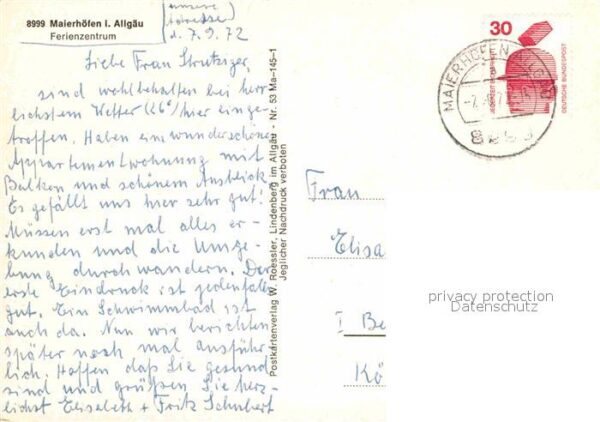 8999 Maierhöfen i. Allgäu
Ferienzentrum
(unsere
Adresse)
d. 7.9.72
Liebe Frau Strutziger,
sind wohlbehalten bei herr
lichstem Wetter (26°) hier einge-
troffen. Haben eine wunderschöne
Appartementwohnung mit
Balkon und schönem Ausblick.
Es gefällt uns hier sehr gut!
Müssen erst mal alles er-
kunden und die Umge-
bung durchwandern. Der
erste Eindruck ist jedenfalls
gut. Ein Schwimmbad ist
auch da. Nun wir berichten
später noch mal ausführ-
lich. Hoffen daß Sie gesund
sind und grüßen Sie herz-
lichst Elisabeth + Fritz Schubert
Postkartenverlag W. Roessler, Lindenberg im Allgäu · Nr. 53 Ma-145-1
Jeglicher Nachdruck verboten
30
JEDERZEIT SICHERHEIT
DEUTSCHE BUNDESPOST
MAIERHÖFEN
Frau
Elisa
I Be
Kö
privacy protection
Datenschutz